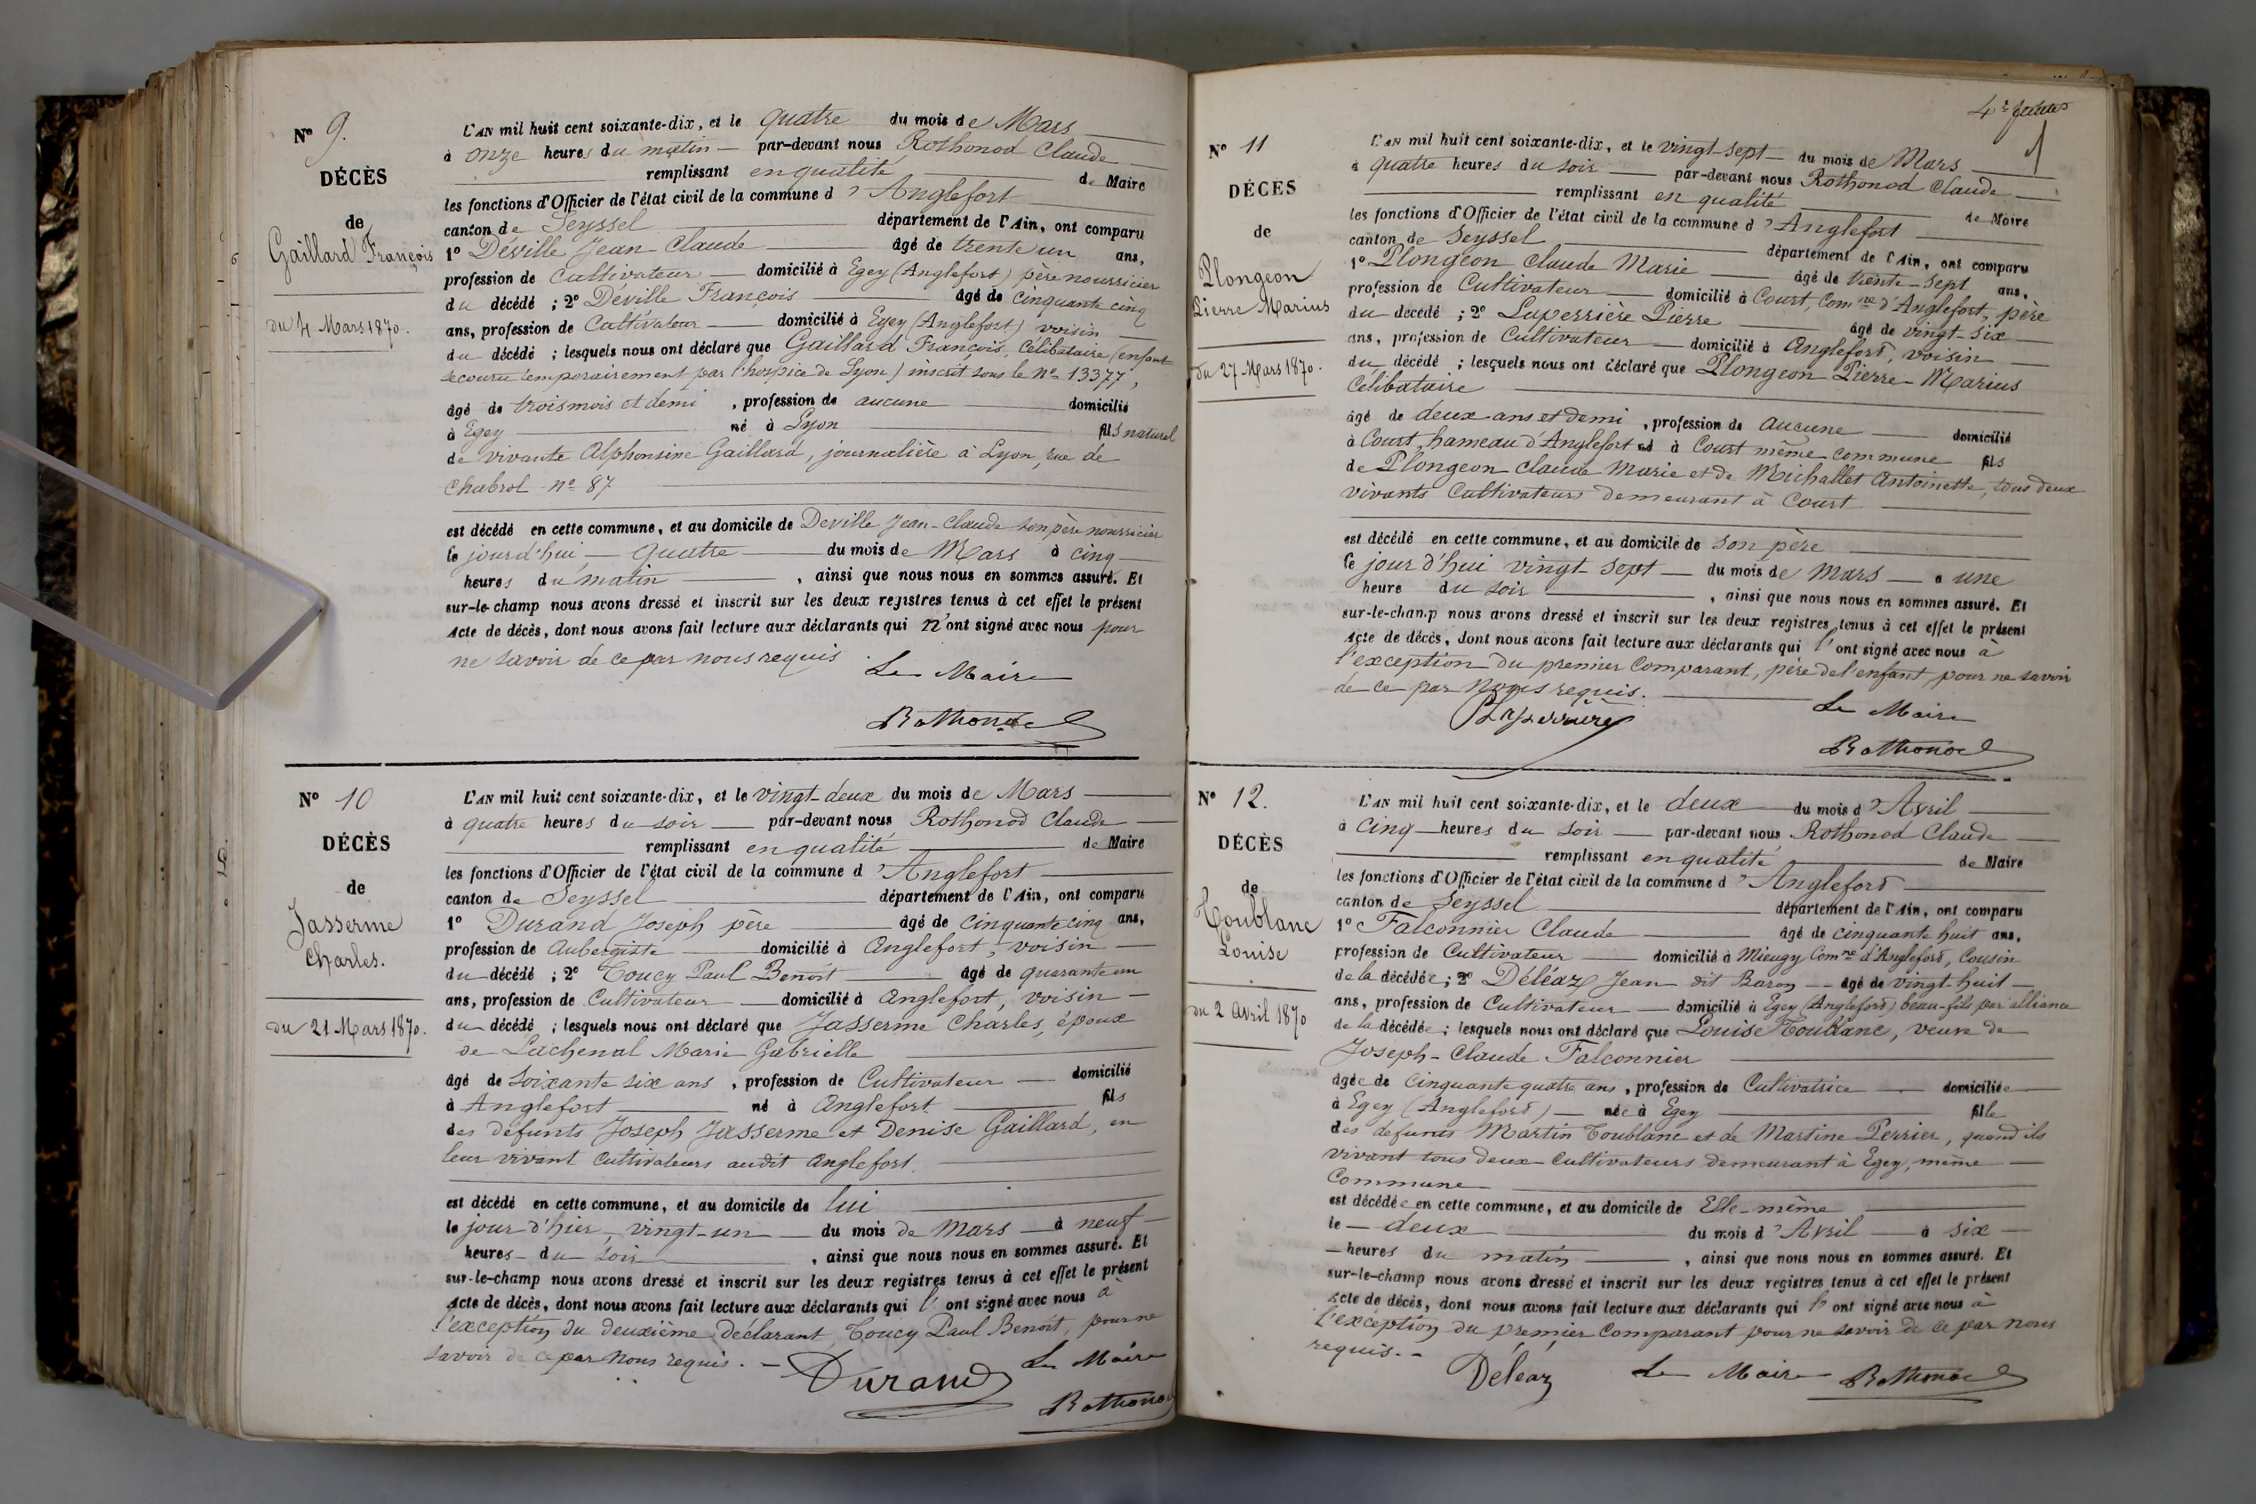 N° 9.
DÉCÈS
de
Gaillard François
du 4 Mars 1870.
L'AN mil huit cent soixante-dix, et le quatre du mois de Mars
à onze heures du matin par-devant nous Rothonod Claude
remplissant en qualité de Maire
les fonctions d'Officier de l'état civil de la commune d'Anglefort
canton de Seyssel département de l'Ain, ont comparu
1° Déville Jean Claude âgé de trente un ans,
profession de Cultivateur domicilié à Egey (Anglefort) père nourricier
du décédé ; 2° Déville François âgé de cinquante cinq
ans, profession de Cultivateur domicilié à Egey (Anglefort) voisin
du décédé ; lesquels nous ont déclaré que Gaillard François, Célibataire (enfant
secouru temporairement par l'hospice de Lyon) inscrit sous le N° 13377,
âgé de trois mois et demi, profession de aucune domicilié
à Egey né à Lyon fils naturel
de vivante Alphonsine Gaillard, journalière à Lyon, rue de
Chabrol n° 87
est décédé en cette commune, et au domicile de Deville Jean-Claude son père nourricier
le jourd'hui quatre du mois de Mars à cinq
heures du matin, ainsi que nous nous en sommes assuré. Et
sur-le-champ nous avons dressé et inscrit sur les deux registres tenus à cet effet le présent
Acte de décès, dont nous avons fait lecture aux déclarants qui n'ont signé avec nous pour
ne savoir de ce par nous requis.
Le Maire
Rothonod
N° 10
DÉCÈS
de
Jasserme
Charles.
du 21 Mars 1870.
L'AN mil huit cent soixante-dix, et le vingt-deux du mois de Mars
à quatre heures du soir par-devant nous Rothonod Claude
remplissant en qualité de Maire
les fonctions d'Officier de l'état civil de la commune d'Anglefort
canton de Seyssel département de l'Ain, ont comparu
1° Durand Joseph père âgé de cinquante cinq ans,
profession de Aubergiste domicilié à Anglefort, voisin
du décédé ; 2° Toucy Paul Benoit âgé de quarante un
ans, profession de Cultivateur domicilié à Anglefort, voisin
du décédé ; lesquels nous ont déclaré que Jasserme Charles, époux
de Lachenal Marie Gabrielle
âgé de soixante six ans, profession de Cultivateur domicilié
à Anglefort né à Anglefort fils
des défunts Joseph Jasserme et Denise Gaillard, en
leur vivant cultivateurs audit Anglefort.
est décédé en cette commune, et au domicile de lui
le jour d'hier, vingt-un du mois de Mars à neuf
heures du soir, ainsi que nous nous en sommes assuré. Et
sur-le-champ nous avons dressé et inscrit sur les deux registres tenus à cet effet le présent
Acte de décès, dont nous avons fait lecture aux déclarants qui l'ont signé avec nous à
l'exception du deuxième déclarant Toucy Paul Benoit, pour ne
savoir de ce par nous requis. -
Durand
Le Maire
Rothonod
N° 11
DÉCÈS
de
Plongeon
Pierre Marius
du 27 Mars 1870.
L'AN mil huit cent soixante-dix, et le vingt-sept du mois de Mars
à quatre heures du soir par-devant nous Rothonod Claude
remplissant en qualité de Maire
les fonctions d'Officier de l'état civil de la commune d'Anglefort
canton de Seyssel département de l'Ain, ont comparu
1° Plongeon Claude Marie âgé de trente-sept ans,
profession de Cultivateur domicilié à Court, Com.ne d'Anglefort, père
du décédé ; 2° Laperrière Pierre âgé de vingt-six
ans, profession de Cultivateur domicilié à Anglefort, voisin
du décédé ; lesquels nous ont déclaré que Plongeon Pierre-Marius
Célibataire
âgé de deux ans et demi, profession de Aucune domicilié
à Court, hameau d'Anglefort né à Court même commune fils
de Plongeon Claude Marie et de Michallet Antoinette, tous deux
vivants Cultivateurs demeurant à Court
est décédé en cette commune, et au domicile de son père
le jour d'hui vingt sept du mois de Mars à une
heure du soir, ainsi que nous nous en sommes assuré. Et
sur-le-champ nous avons dressé et inscrit sur les deux registres tenus à cet effet le présent
Acte de décès, dont nous avons fait lecture aux déclarants qui l'ont signé avec nous à
l'exception du premier Comparant, père de l'enfant, pour ne savoir
de ce par nous requis.
PLaperrière
Le Maire
Rothonod
N° 12.
DÉCÈS
de
Toublanc
Louise
du 2 Avril 1870
L'AN mil huit cent soixante-dix, et le deux du mois d'Avril
à cinq heures du soir par-devant nous Rothonod Claude
remplissant en qualité de Maire
les fonctions d'Officier de l'état civil de la commune d'Anglefort
canton de Seyssel département de l'Ain, ont comparu
1° Falconnier Claude âgé de cinquante huit ans,
profession de Cultivateur domicilié à Mieugy Com.ne d'Anglefort, Cousin
de la décédée ; 2° Déléaz Jean dit Baron âgé de vingt-huit
ans, profession de Cultivateur domicilié à Egey (Anglefort) beau-fils par alliance
de la décédée ; lesquels nous ont déclaré que Louise Toublanc, veuve de
Joseph-Claude Falconnier
âgée de cinquante quatre ans, profession de Cultivatrice domiciliée
à Egey (Anglefort) née à Egey fille
des défunts Martin Toublanc et de Martine Perrier, quand ils
vivant tous deux Cultivateurs demeurant à Egey, même
Commune
est décédée en cette commune, et au domicile de Elle-même
le deux du mois d'Avril à six
heures du matin, ainsi que nous nous en sommes assuré. Et
sur-le-champ nous avons dressé et inscrit sur les deux registres tenus à cet effet le présent
Acte de décès, dont nous avons fait lecture aux déclarants qui l'ont signé avec nous à
l'exception du premier Comparant pour ne savoir de ce par nous
requis. -
Déléaz
Le Maire
Rothonod